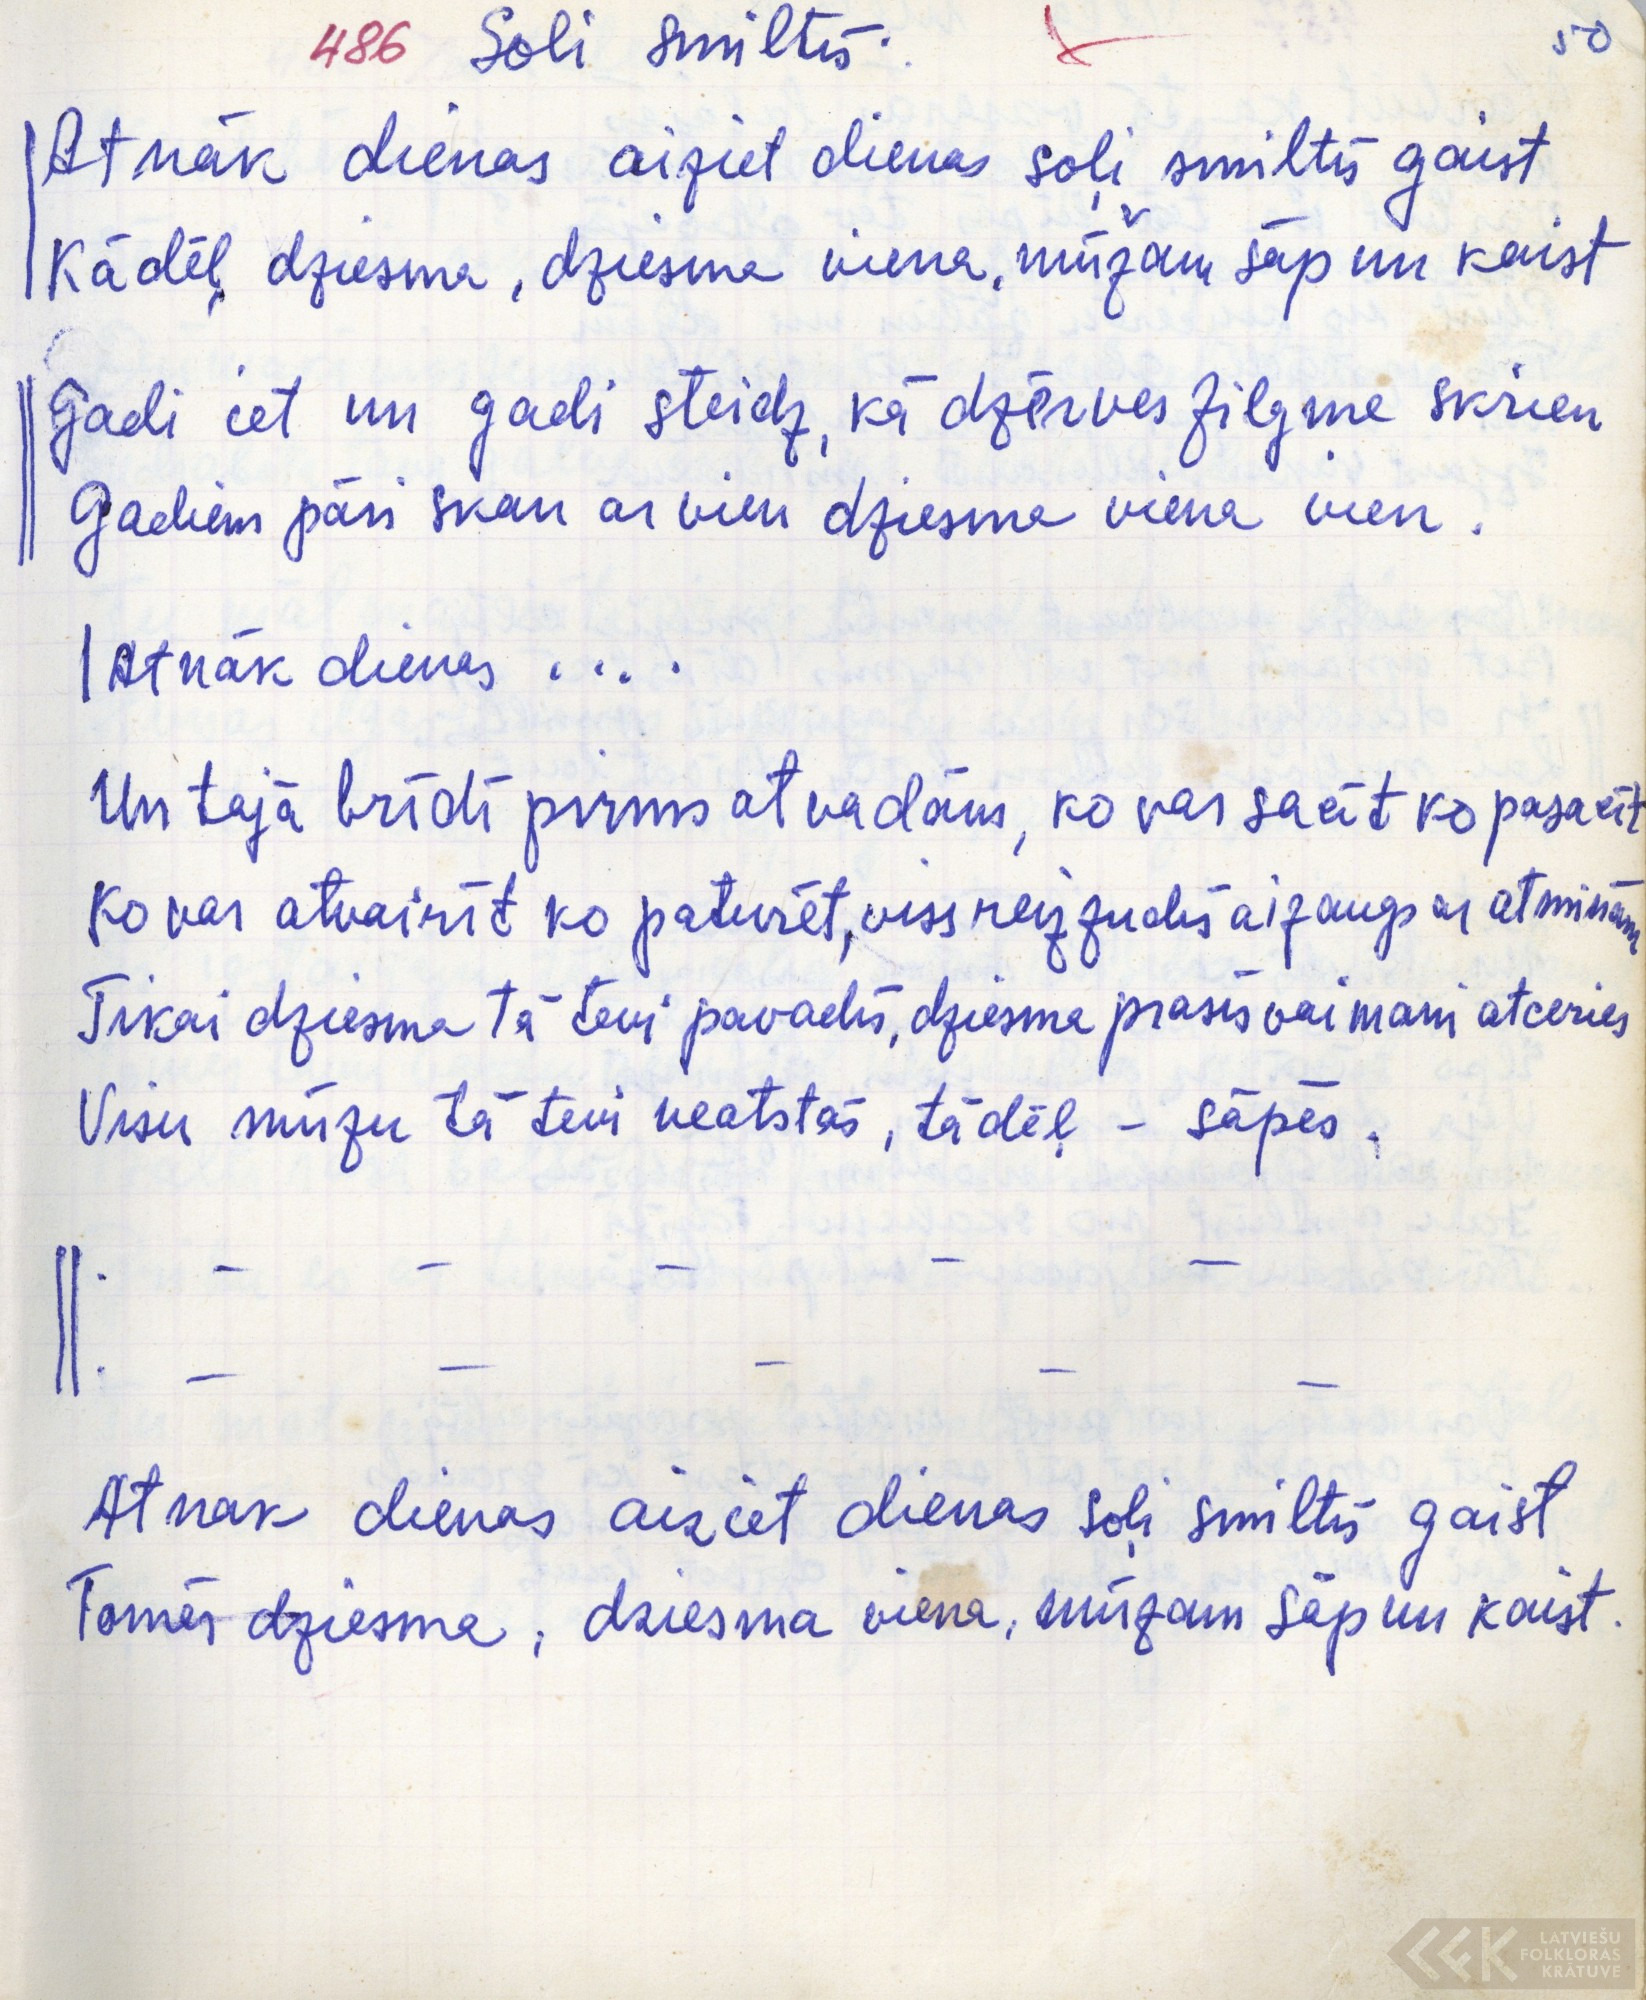 486 Soli smiltīs. 50
Atnāk dienas aiziet dienas soļi smiltīs gaist
Kādēļ dziesma, dziesma viena, mūžam sāp un kaist
Gadi iet un gadi steidz, kā dzērves zilgme skrien
Gadiem pāri skan ar vien dziesma viena vien.
Atnāk dienas ....
Un tajā brīdī pirms atvadām, ko var sacīt ko pasacīt
Ko var atvairīt ko paturēt, viss reiz zudīs aizaugs ar atmiņām
Tikai dziesma tā tevi pavadīs, dziesma prasīs vai mani atceries
Visu mūzu tā tevi neatstās, tādēļ - sāpēs.
. - - - - -
. - - - - -
Atnak dienas aiziet dienas soļi smiltīs gaist
Tomēr dziesma, dziesma viena, mūzam sāp un kaist.
LATVIEŠU
FOLKLORAS
KRĀTUVE